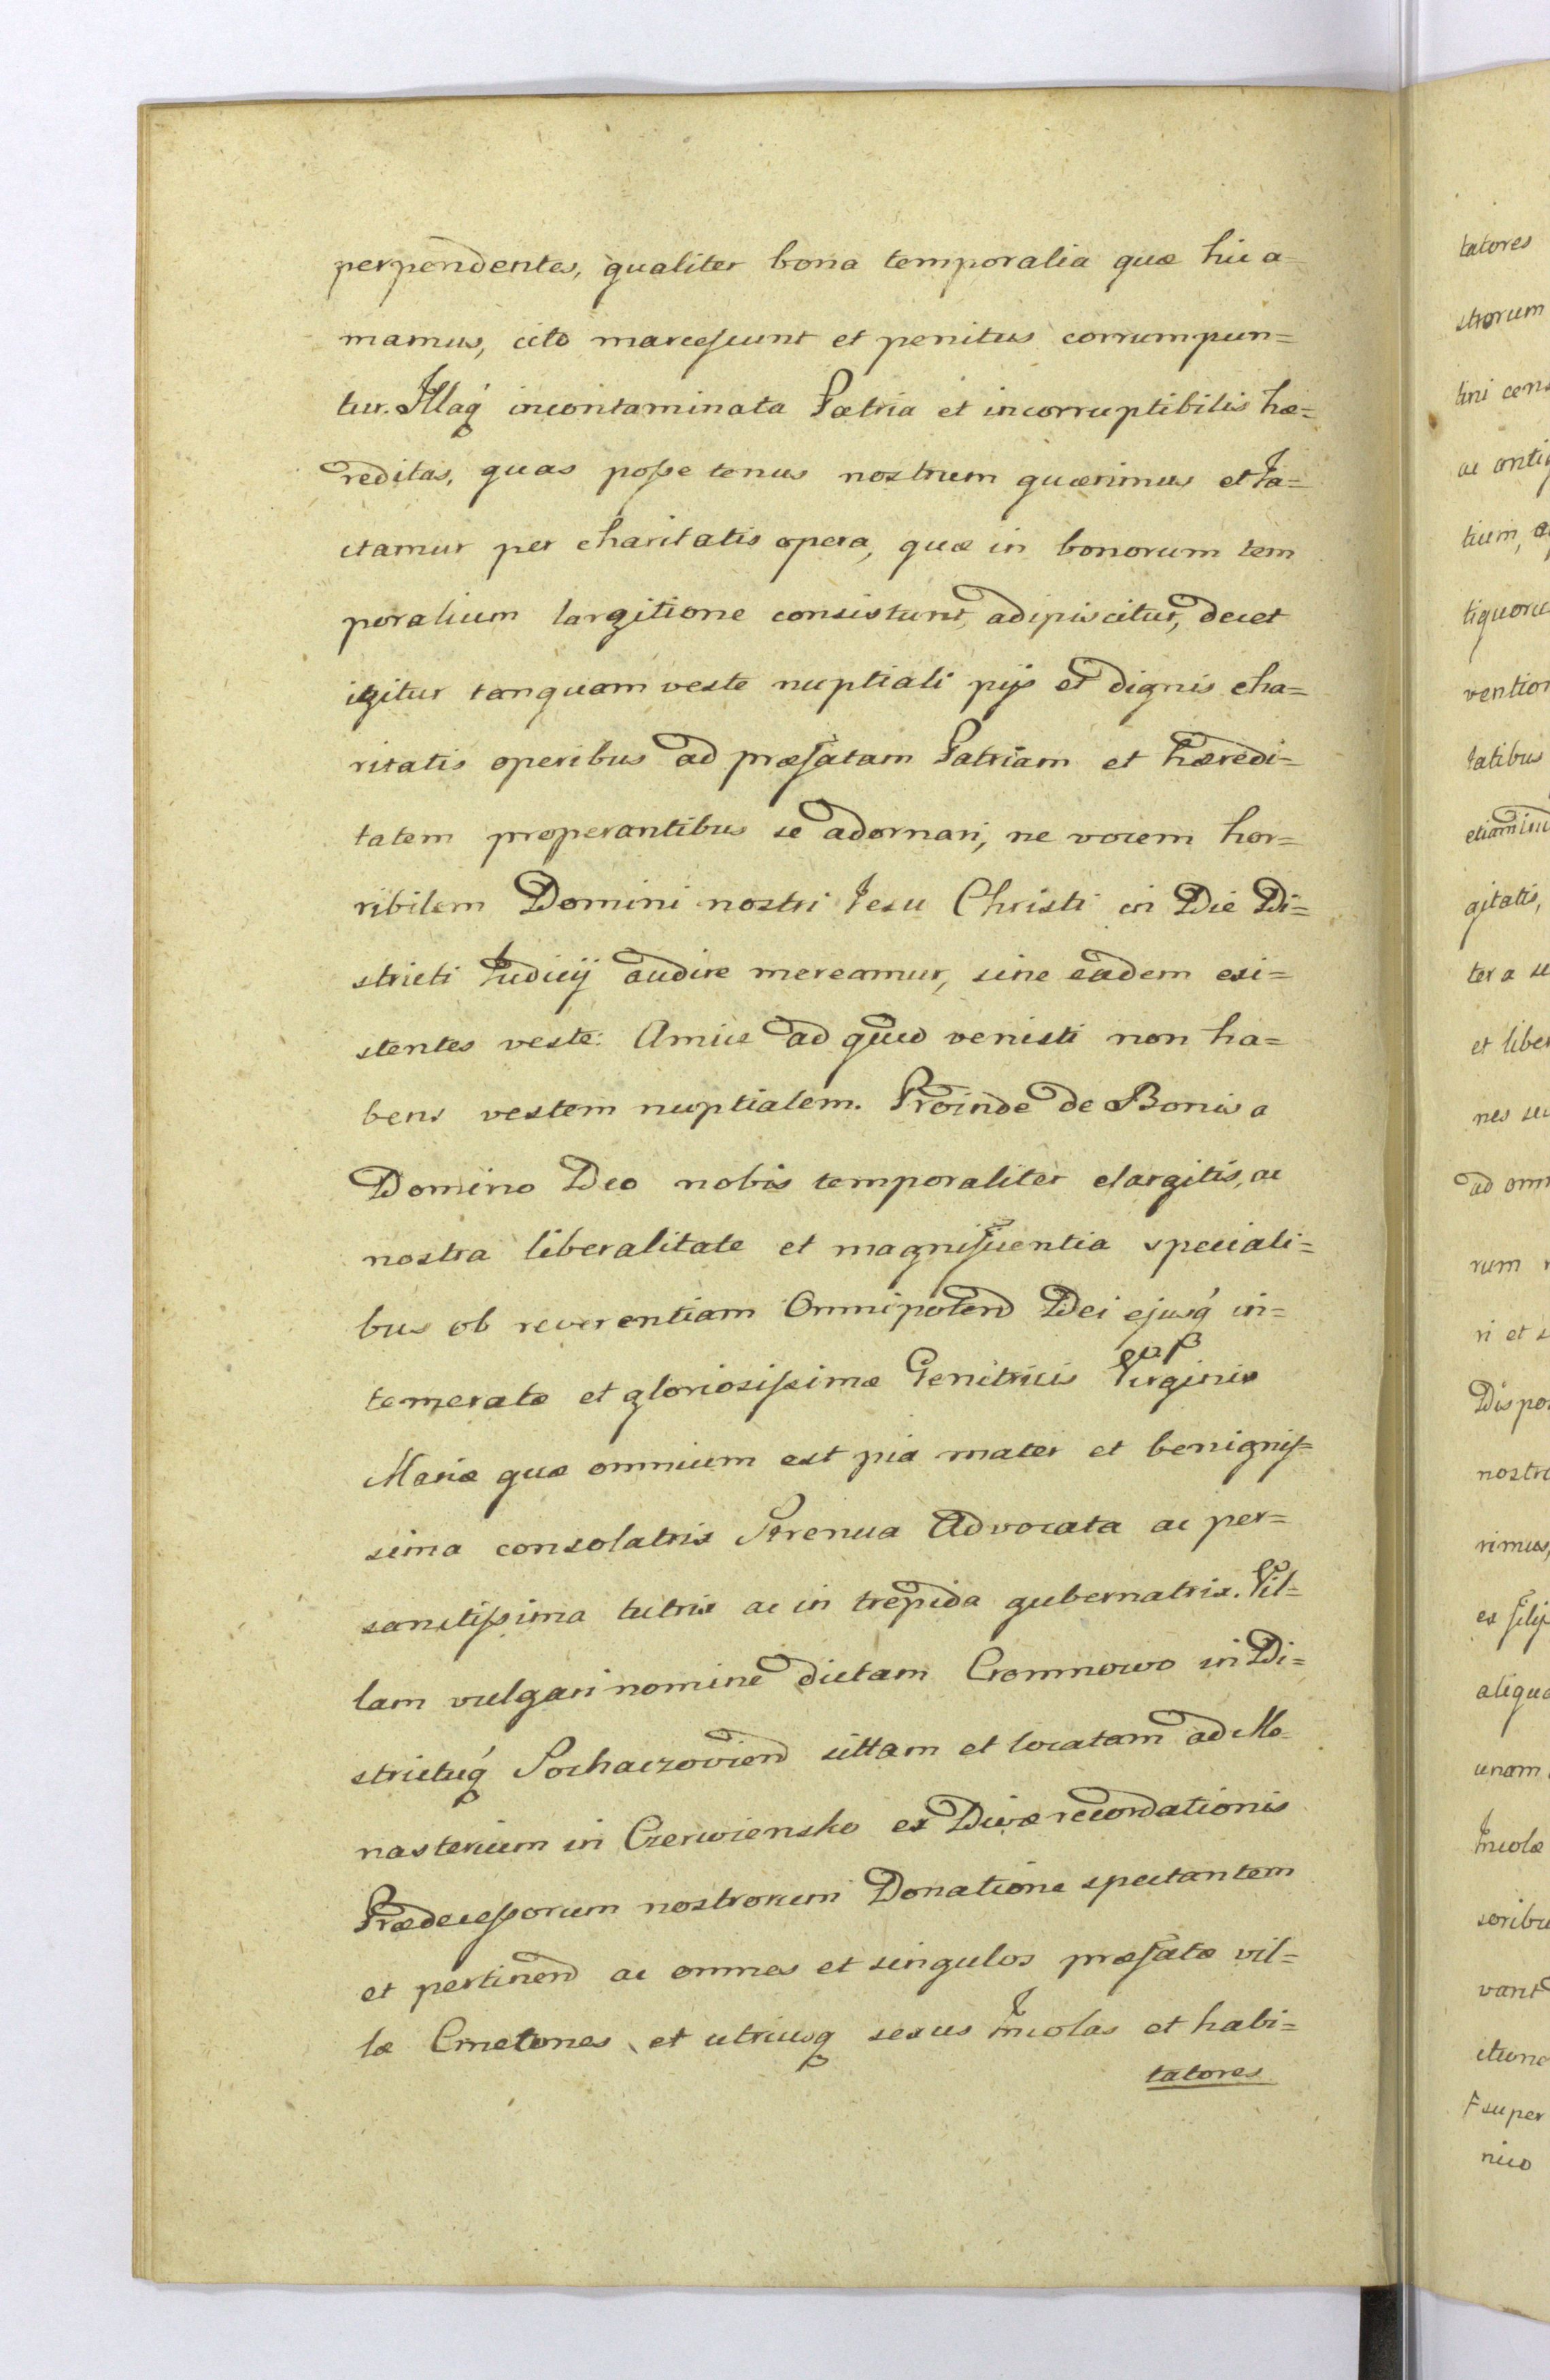 perpendentes, qualiter bona temporalia quæ hic a=
mamus, cito marcescunt et penitus corrumpun=
tur. Illaq́ incontaminata Patria et incorruptibilis hæ=
reditas, quas poſse tenus nostrum quærimus et Ia=
ctamur per charitatis opera, quæ in bonorum tem
poralium largitione consistunt, adipiscitur, decet
igitur tanquam veste nuptiali pijs et dignis cha=
ritatis operibus ad præfatam Patriam et hæredi=
tatem properantibus se adornari, ne vocem hor=
ribilem Domini nostri Iesu Christi in Die Di=
stricti Iudicij audire mereamur, sine eadem exi=
stentes veste: Amice ad quid venisti non ha=
bens vestem nuptialem. Proinde de Bonis a
Domino Deo nobis temporaliter elargitis, ac
nostra liberalitate et magnificentia speciali=
bus ob reverentiam Omnipotend Dei ejusq́ in=
temeratæ et glorioſissimæ Genitricis Virginis
Mariæ quæ omnium est pia mater et benigniſ=
sima consolatrix Strenua Advocata ac per=
sanctiſsima tutrix ac in trepida gubernatrix. Vil=
lam vulgari nomine dictam Cromnowo in Di=
strictuq́ Sochaczoviend sittam et locatam ad Mo=
nasterium in Czerwiensko ex Divæ recordationis
Prædeceſsorum nostrorum Donatione spectantem
et pertinend ac omnes et singulos præfatæ vil=
læ Cmetones, et utriusq sexus Incolas et habi=
tatores
tatores
strorum
tini cens
ac antiq
tium, a
tiquoru
vention
tatibus
etiam
gitatis,
ter a se
et liber
nes seu
ad omn
rum
ri et s
Dispo
nostr
rimus,
ex filij
aliqua
unam
Incolæ
soribu
vant
ctione
super
nico